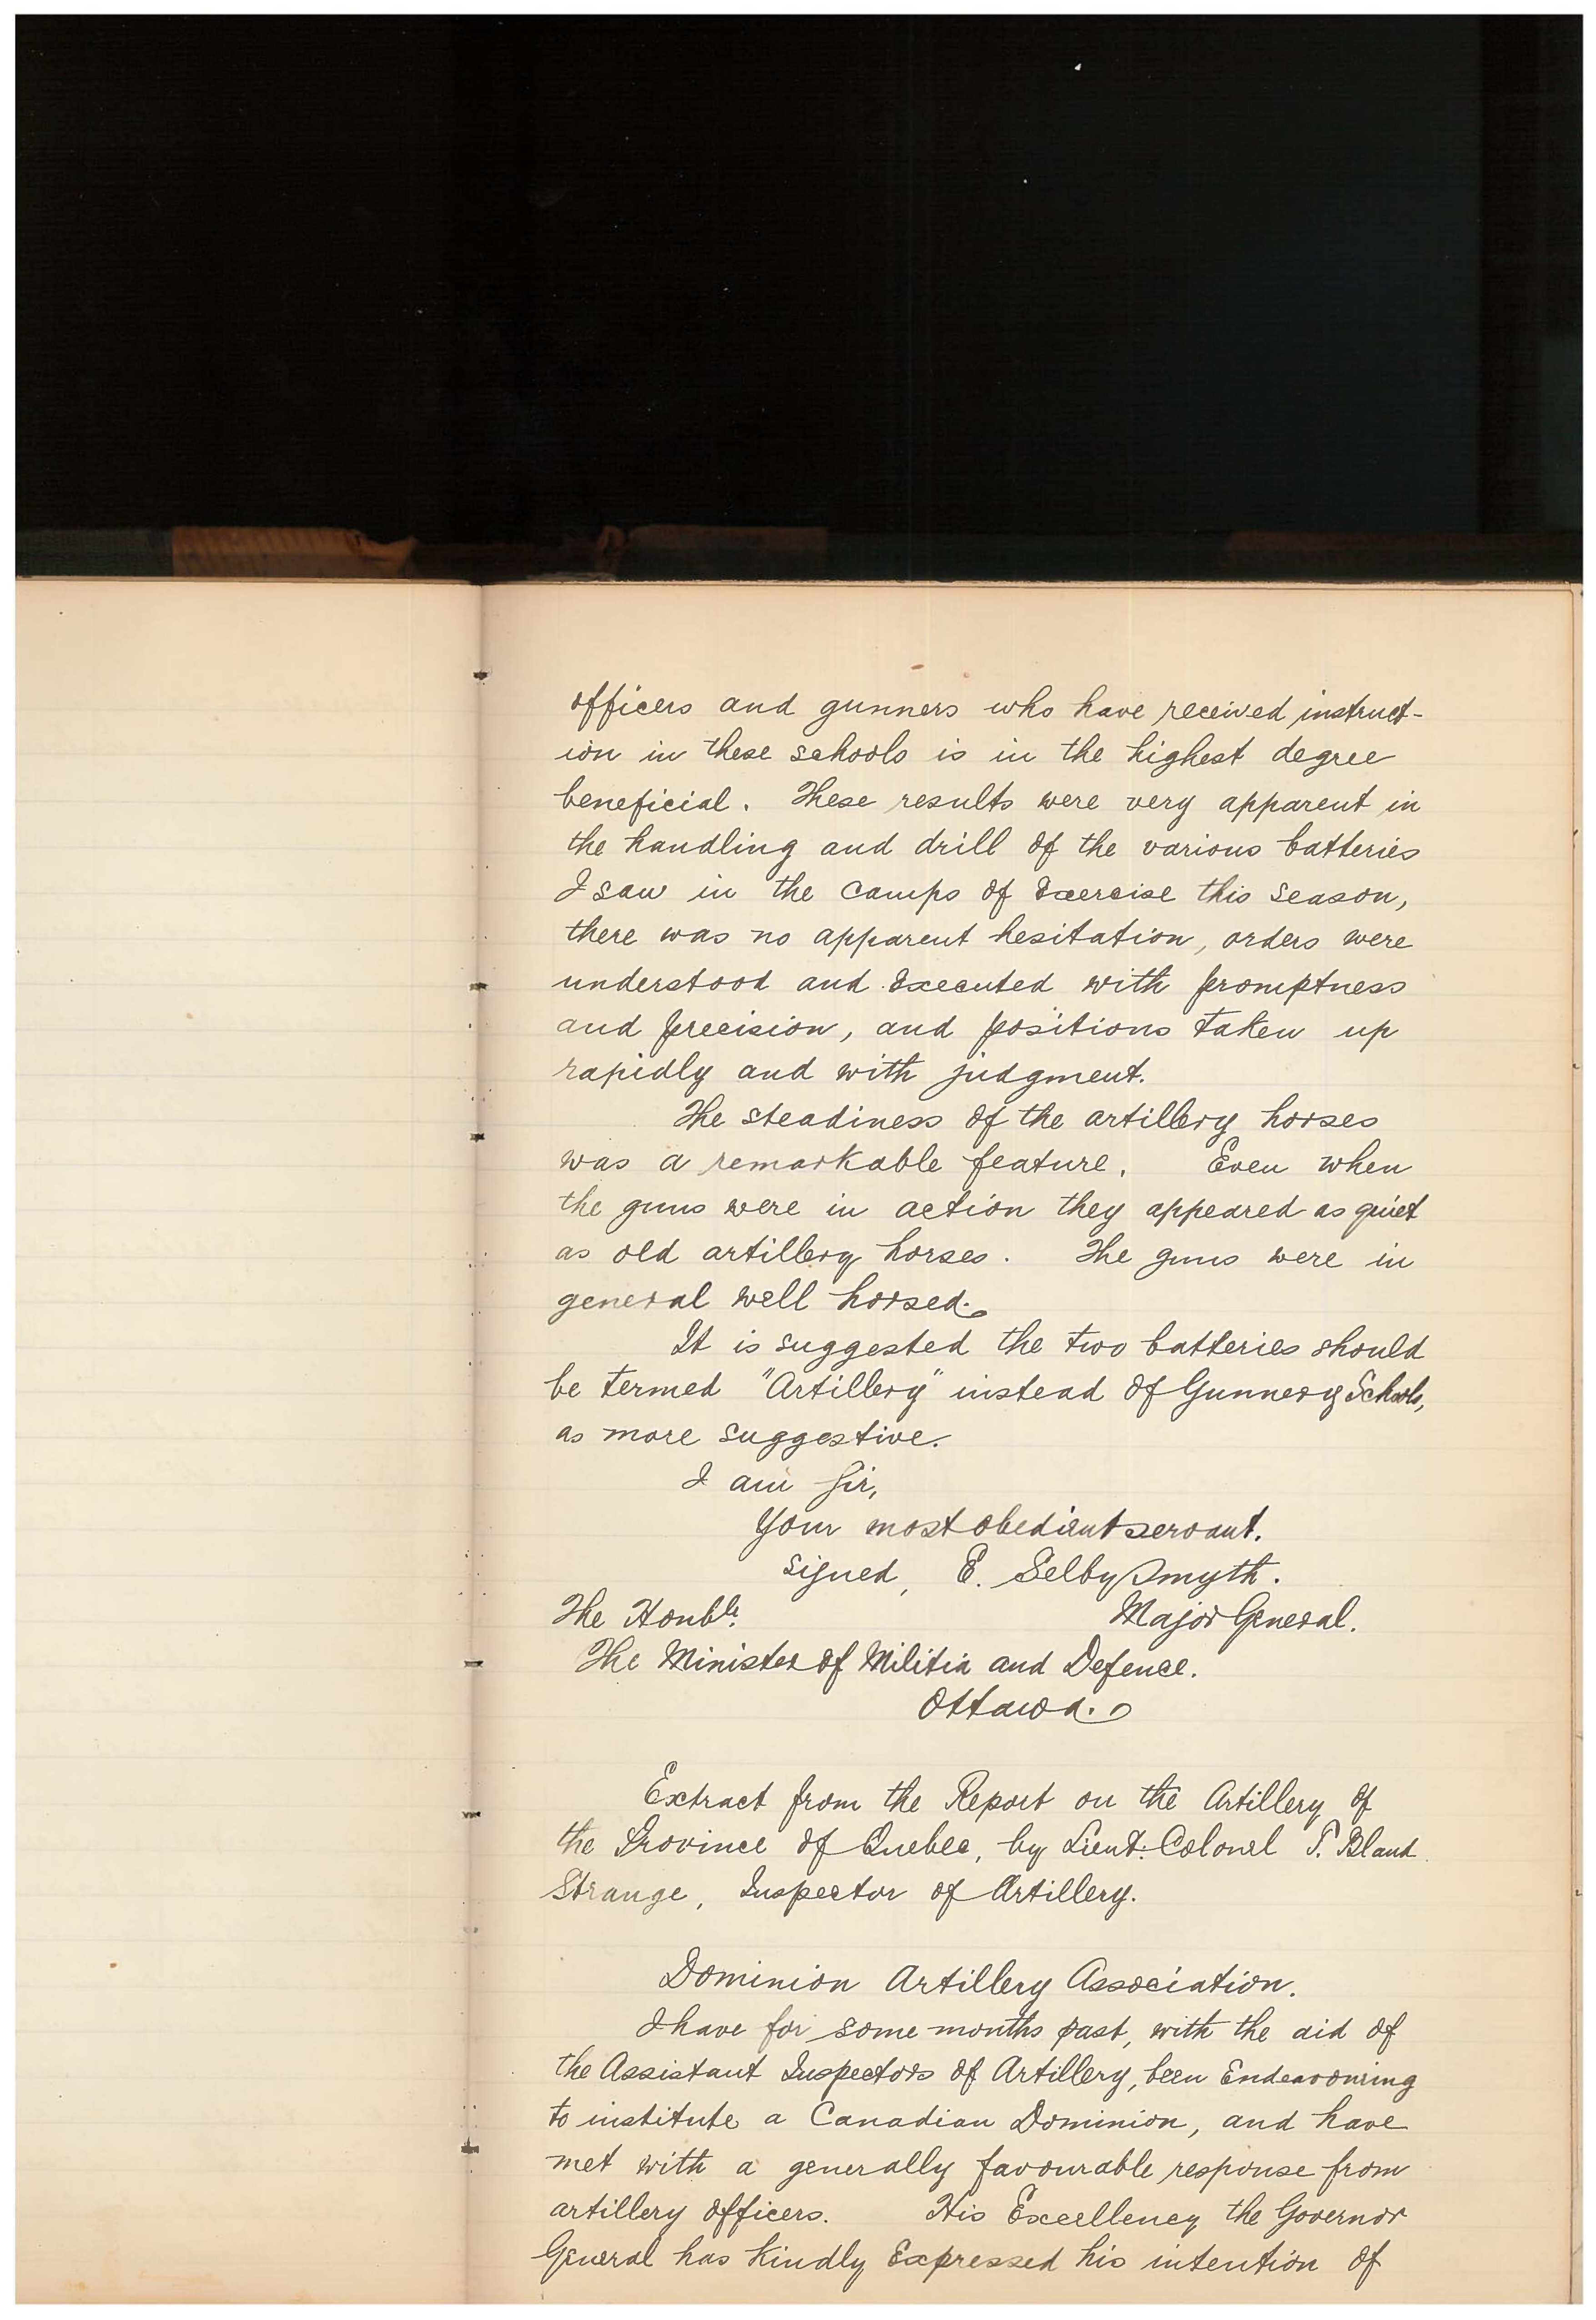 officers and gunners who have received instruct-
ion in these schools is in the highest degree
beneficial. These results were very apparent in
the handling and drill of the various batteries
I saw in the camps of Exercise this season,
there was no apparent hesitation, orders were
understood and Executed with promptness
and precision, and positions taken up
rapidly and with judgment.
The steadiness of the artillery horses
was a remarkable feature. Even when
the guns were in action they appeared as quiet
as old artillery horses. The guns were in
general well horsed.
It is suggested the two batteries should
be termed "Artillery" instead of Gunnery Schools,
as more suggestive.
I am Sir,
Your most obedient servant.
signed, E. Selby Smyth.
The Honble.
Major General.
The Minister of Militia and Defence.
Ottawa.
Extract from the Report on the Artillery of
the Province of Quebec, by Lieut: Colonel T. Bland
Strange, Inspector of Artillery.
Dominion Artillery Association.
I have for some months past, with the aid of
the Assistant Inspectors of Artillery, been Endeavouring
to institute a Canadian Dominion, and have
met with a generally favourable response from
artillery officers. His Excellency the Governor
General has kindly Expressed his intention of